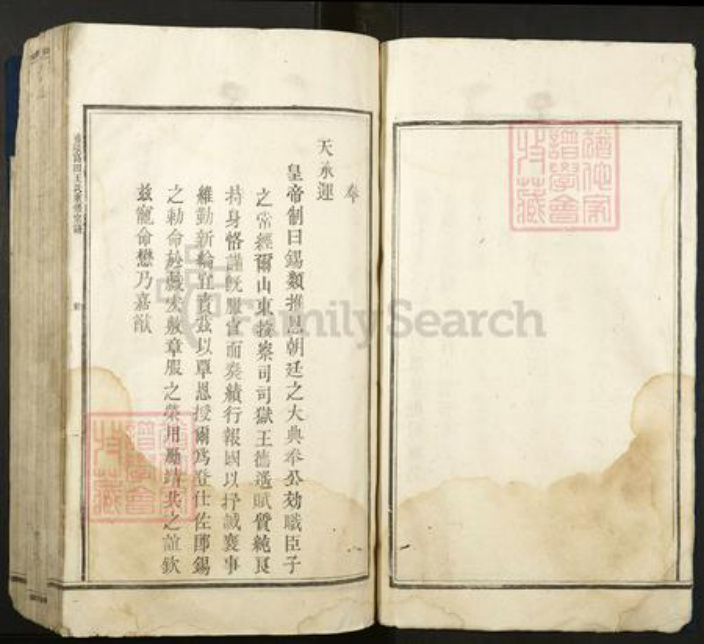 奉
天承運
皇帝制曰錫類推恩朝廷之大典奉公効職臣子
之常經爾山東按察司司獄王德遙賦質純良
持身恪謹既服官而奏績行報國以抒誠襄事
維勤新綸宜賁茲以覃恩授爾為登仕佐郎錫
之勅命於戲式敷章服之榮用勵靖共之誼欽
茲寵命懋乃嘉猷
FamilySearch